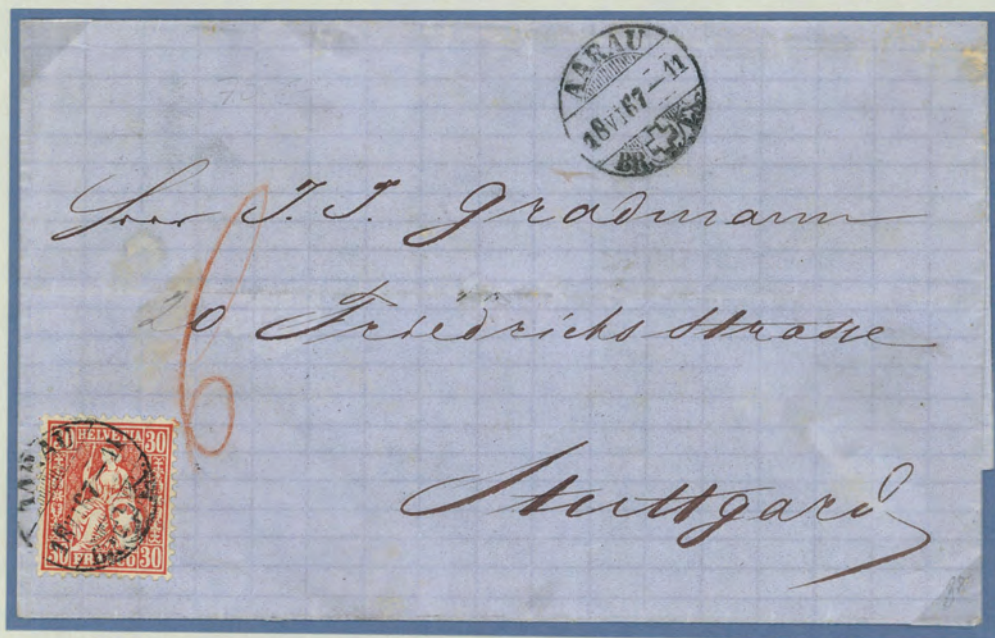 AARAU
18 VI 67 – 11
BR. EX.
Herr J. J. Gradmann
6
20 Friedrichsstrasse
Stuttgard
HELVETIA 30
AARAU
30 FRANCO 30